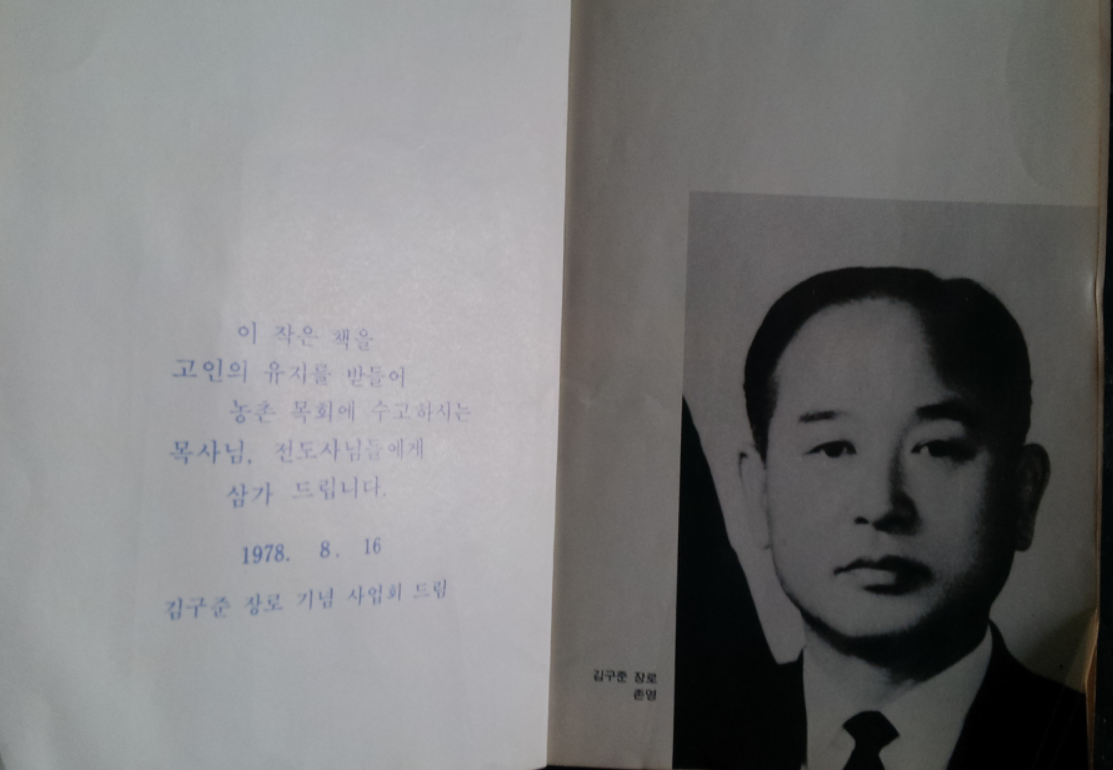 이 작은 책을
고인의 유지를 받들어
농촌 목회에 수고하시는
목사님, 전도사님들에게
삼가 드립니다.
1978. 8. 16
김구준 장로 기념 사업회 드림
김구준 장로
존영